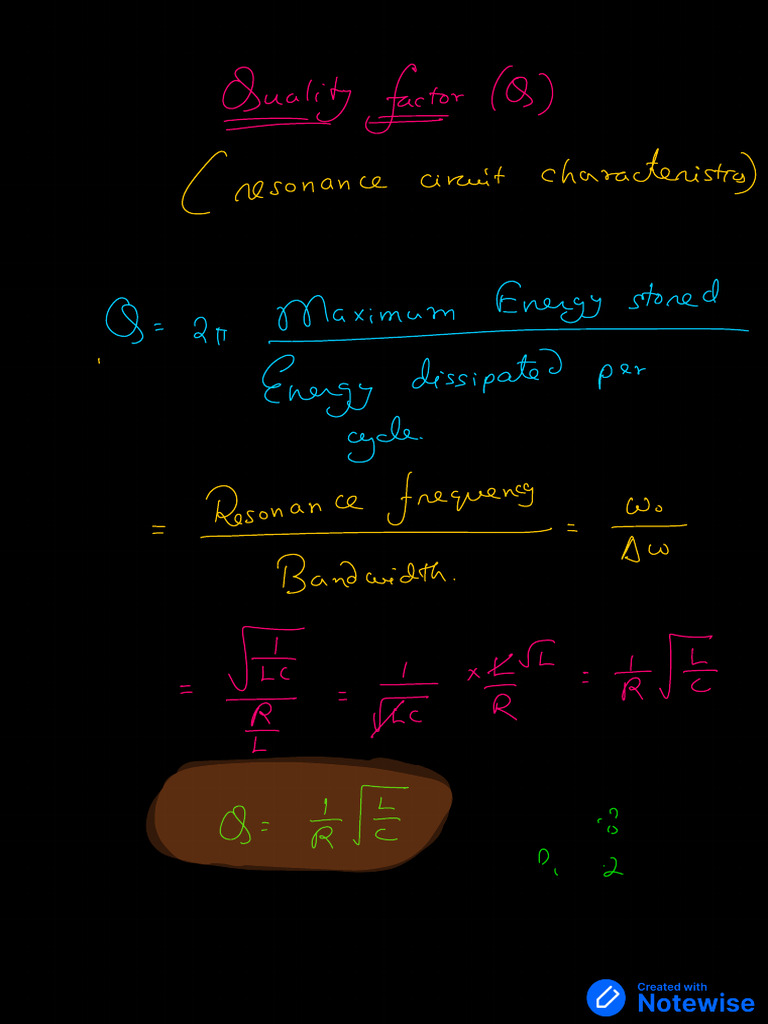 Quality factor (Q)
(resonance circuit characteristics)
Q = 2π Maximum Energy stored / Energy dissipated per
cycle.
= Resonance frequency / Bandwidth. = ω₀ / Δω
= √(1/LC) / (R/L) = 1/√LC × L √L / R = 1/R √(L/C)
Q = 1/R √(L/C)
2
Created with
Notewise